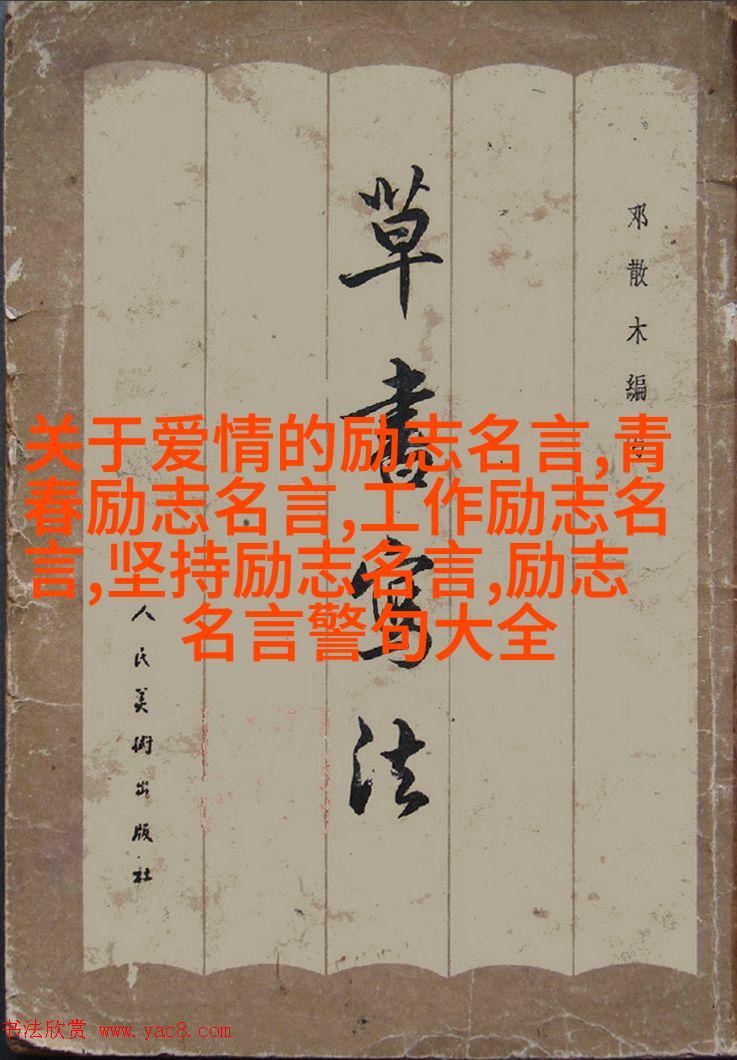 邓散木編
草書寫法
关于爱情的励志名言,青
春励志名言,工作励志名
言,坚持励志名言,励志
名言警句大全
人民美術出版社
书法欣赏 www.yac8.com